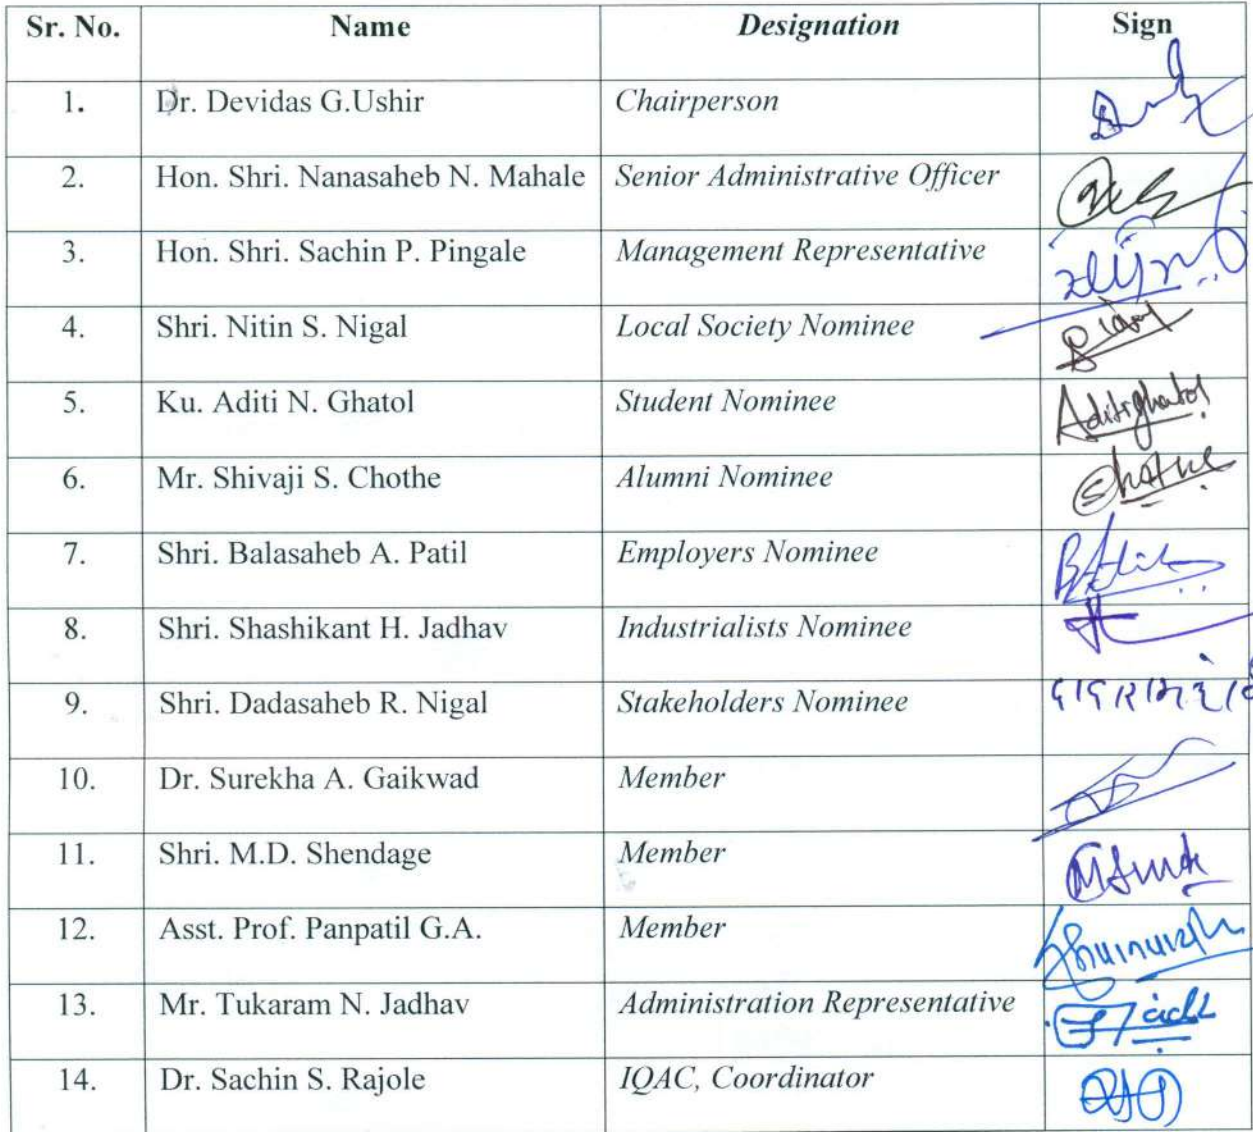 Sr. No. Name Designation Sign
1. Dr. Devidas G.Ushir Chairperson
2. Hon. Shri. Nanasaheb N. Mahale Senior Administrative Officer
3. Hon. Shri. Sachin P. Pingale Management Representative
4. Shri. Nitin S. Nigal Local Society Nominee
5. Ku. Aditi N. Ghatol Student Nominee Aditi Ghatol
6. Mr. Shivaji S. Chothe Alumni Nominee
7. Shri. Balasaheb A. Patil Employers Nominee
8. Shri. Shashikant H. Jadhav Industrialists Nominee
9. Shri. Dadasaheb R. Nigal Stakeholders Nominee
10. Dr. Surekha A. Gaikwad Member
11. Shri. M.D. Shendage Member
12. Asst. Prof. Panpatil G.A. Member
13. Mr. Tukaram N. Jadhav Administration Representative
14. Dr. Sachin S. Rajole IQAC, Coordinator